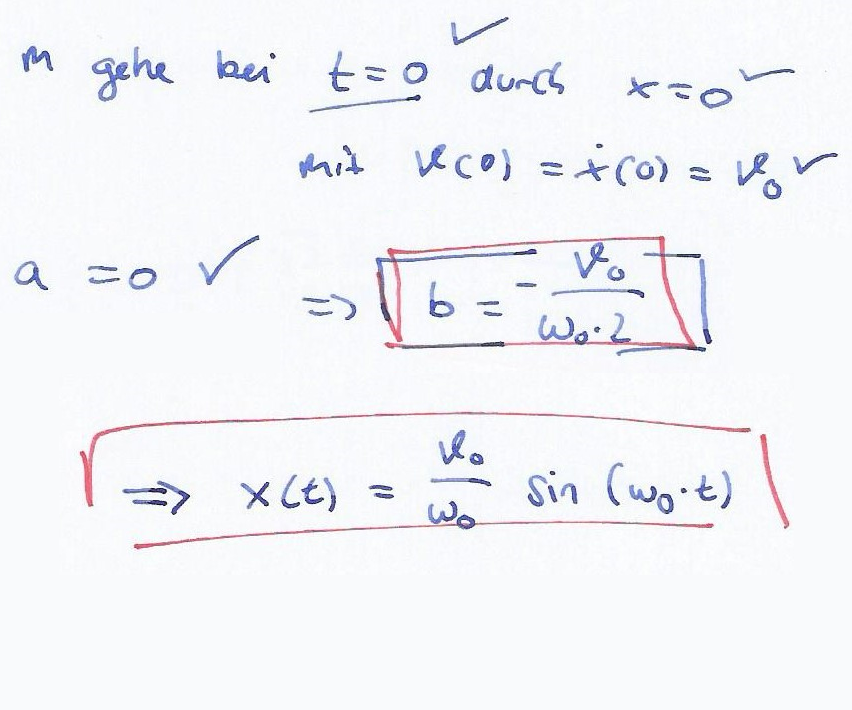 m gehe bei t = 0 ✓ durch x = 0 ✓
mit v(0) = ẋ(0) = v₀ ✓
a = 0 ✓
=> b = - v₀ / ω₀·2
=> x(t) = v₀ / ω₀ sin (ω₀·t)